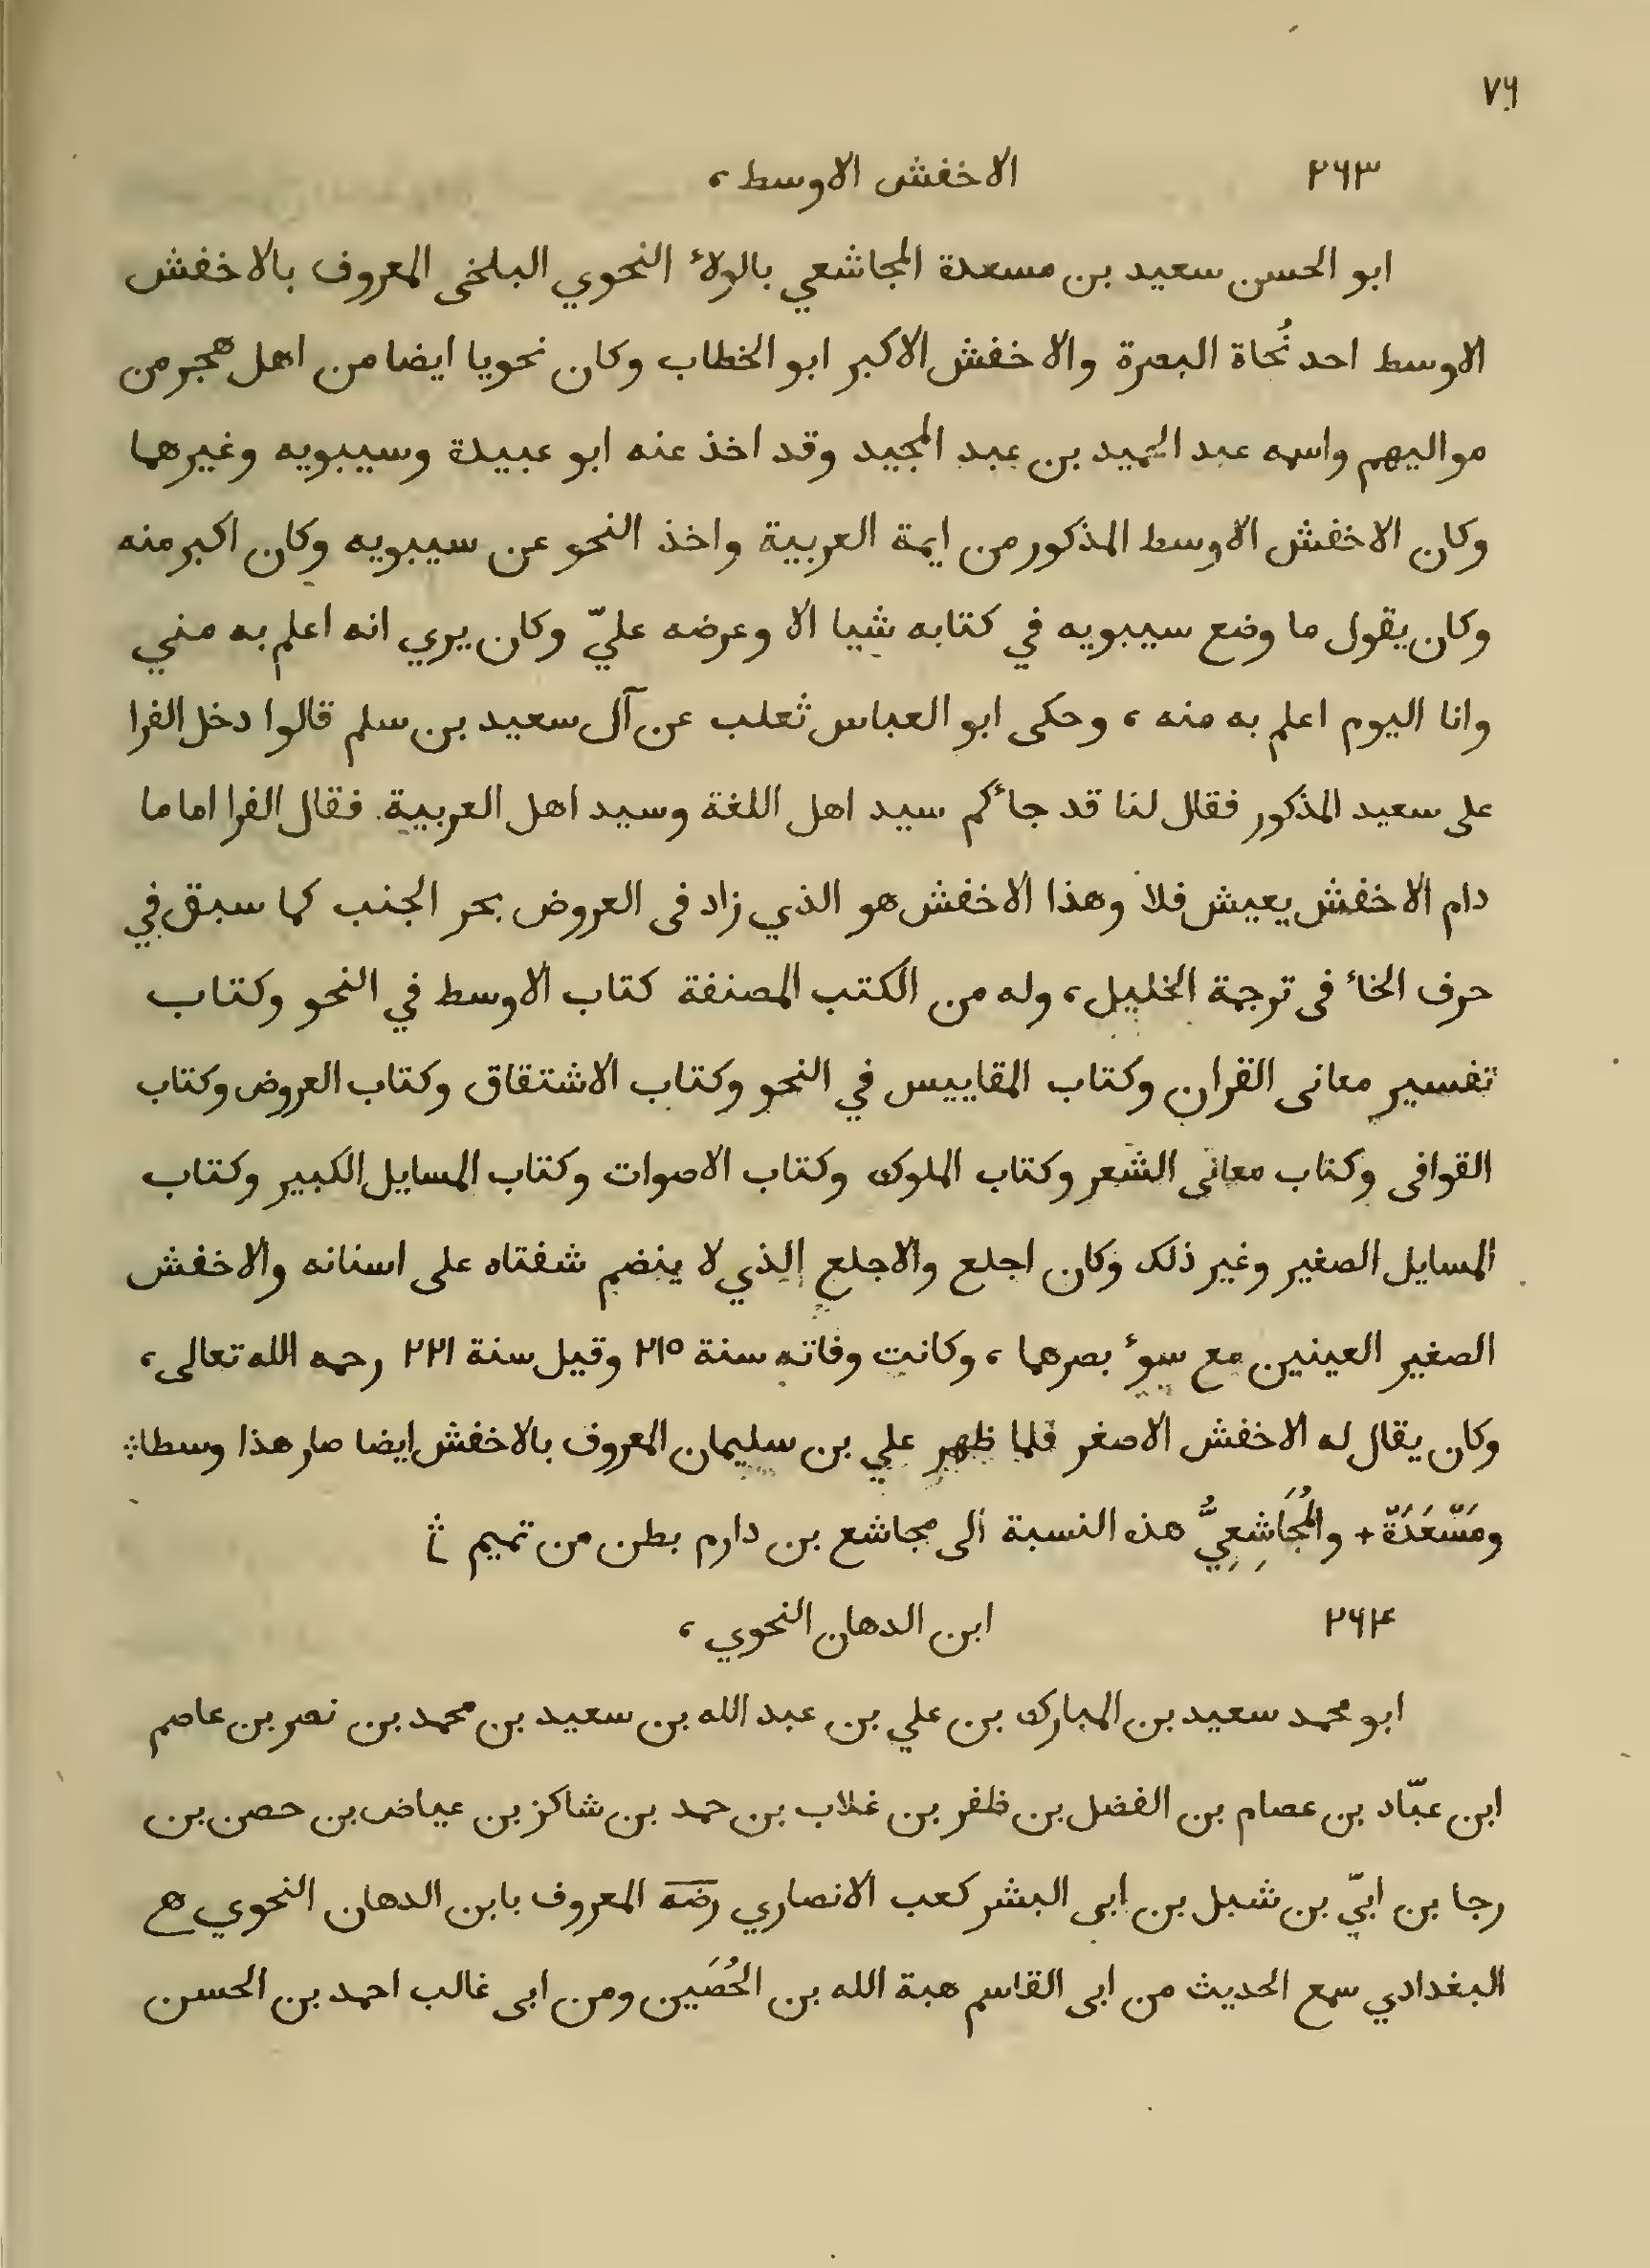 ٧٦
٢٦٣ الاخفش الاوسط ،
ابو الحسن سعيد بن مسعدة المجاشعي بالولاء النحوي البلخى المعروف بالاخفش
الاوسط احد نُحاة البصرة والاخفش الاكبر ابو الخطاب وكان نحويا ايضا من اهل هجر من
مواليهم واسمه عبد الحميد بن عبد المجيد وقد اخذ عنه ابو عبيدة وسيبويه وغيرهما
وكان الاخفش الاوسط المذكور من ايمة العربية واخذ النحو عن سيبويه وكان اكبر منه
وكان يقول ما وضع سيبويه في كتابه شيا الا وعرضه عليّ وكان يري انه اعلم به مني
وانا اليوم اعلم به منه ، وحكى ابو العباس ثعلب عن آل سعيد بن سلم قالوا دخل الفرا
على سعيد المذكور فقال لنا قد جاءكم سيد اهل اللغة وسيد اهل العربية فقال الفرا اما ما
دام الاخفش يعيش فلا وهذا الاخفش هو الذي زاد فى العروض بحر الجنب كما سبق في
حرف الخاء فى ترجمة الخليل ، وله من الكتب المصنفة كتاب الاوسط في النحو وكتاب
تفسير معانى القران وكتاب المقاييس في النحو وكتاب الاشتقاق وكتاب العروض وكتاب
القوافى وكتاب معانى الشعر وكتاب الملوك وكتاب الاصوات وكتاب المسايل الكبير وكتاب
المسايل الصغير وغير ذلك وكان اجلع والاجلع الذي لا ينضم شفتاه على اسنانه والاخفش
الصغير العينين مع سوء بصرهما ، وكانت وفاته سنة ٢١٥ وقيل سنة ٢٢١ رحمه الله تعالى ،
وكان يقال له الاخفش الاصغر فلما ظهر علي بن سليمان المعروف بالاخفش ايضا صار هذا وسطا
ومَسْعَدَة + والمُجَاشِعِيُّ هذه النسبة الى مجاشع بن دارم بطن من تميم
٢٦٤ ابن الدهان النحوي ،
ابو محمد سعيد بن المبارك بن علي بن عبد الله بن سعيد بن محمد بن نصر بن عاصم
ابن عبّاد بن عصام بن الفضل بن ظفر بن غلاب بن حمد بن شاكر بن عياض بن حصن بن
رجا بن ابيّ بن شبل بن ابى البشر كعب الانصاري رضه المعروف بابن الدهان النحوي
البغدادي سمع الحديث من ابى القاسم هبة الله بن الحُصَين ومن ابى غالب احمد بن الحسن